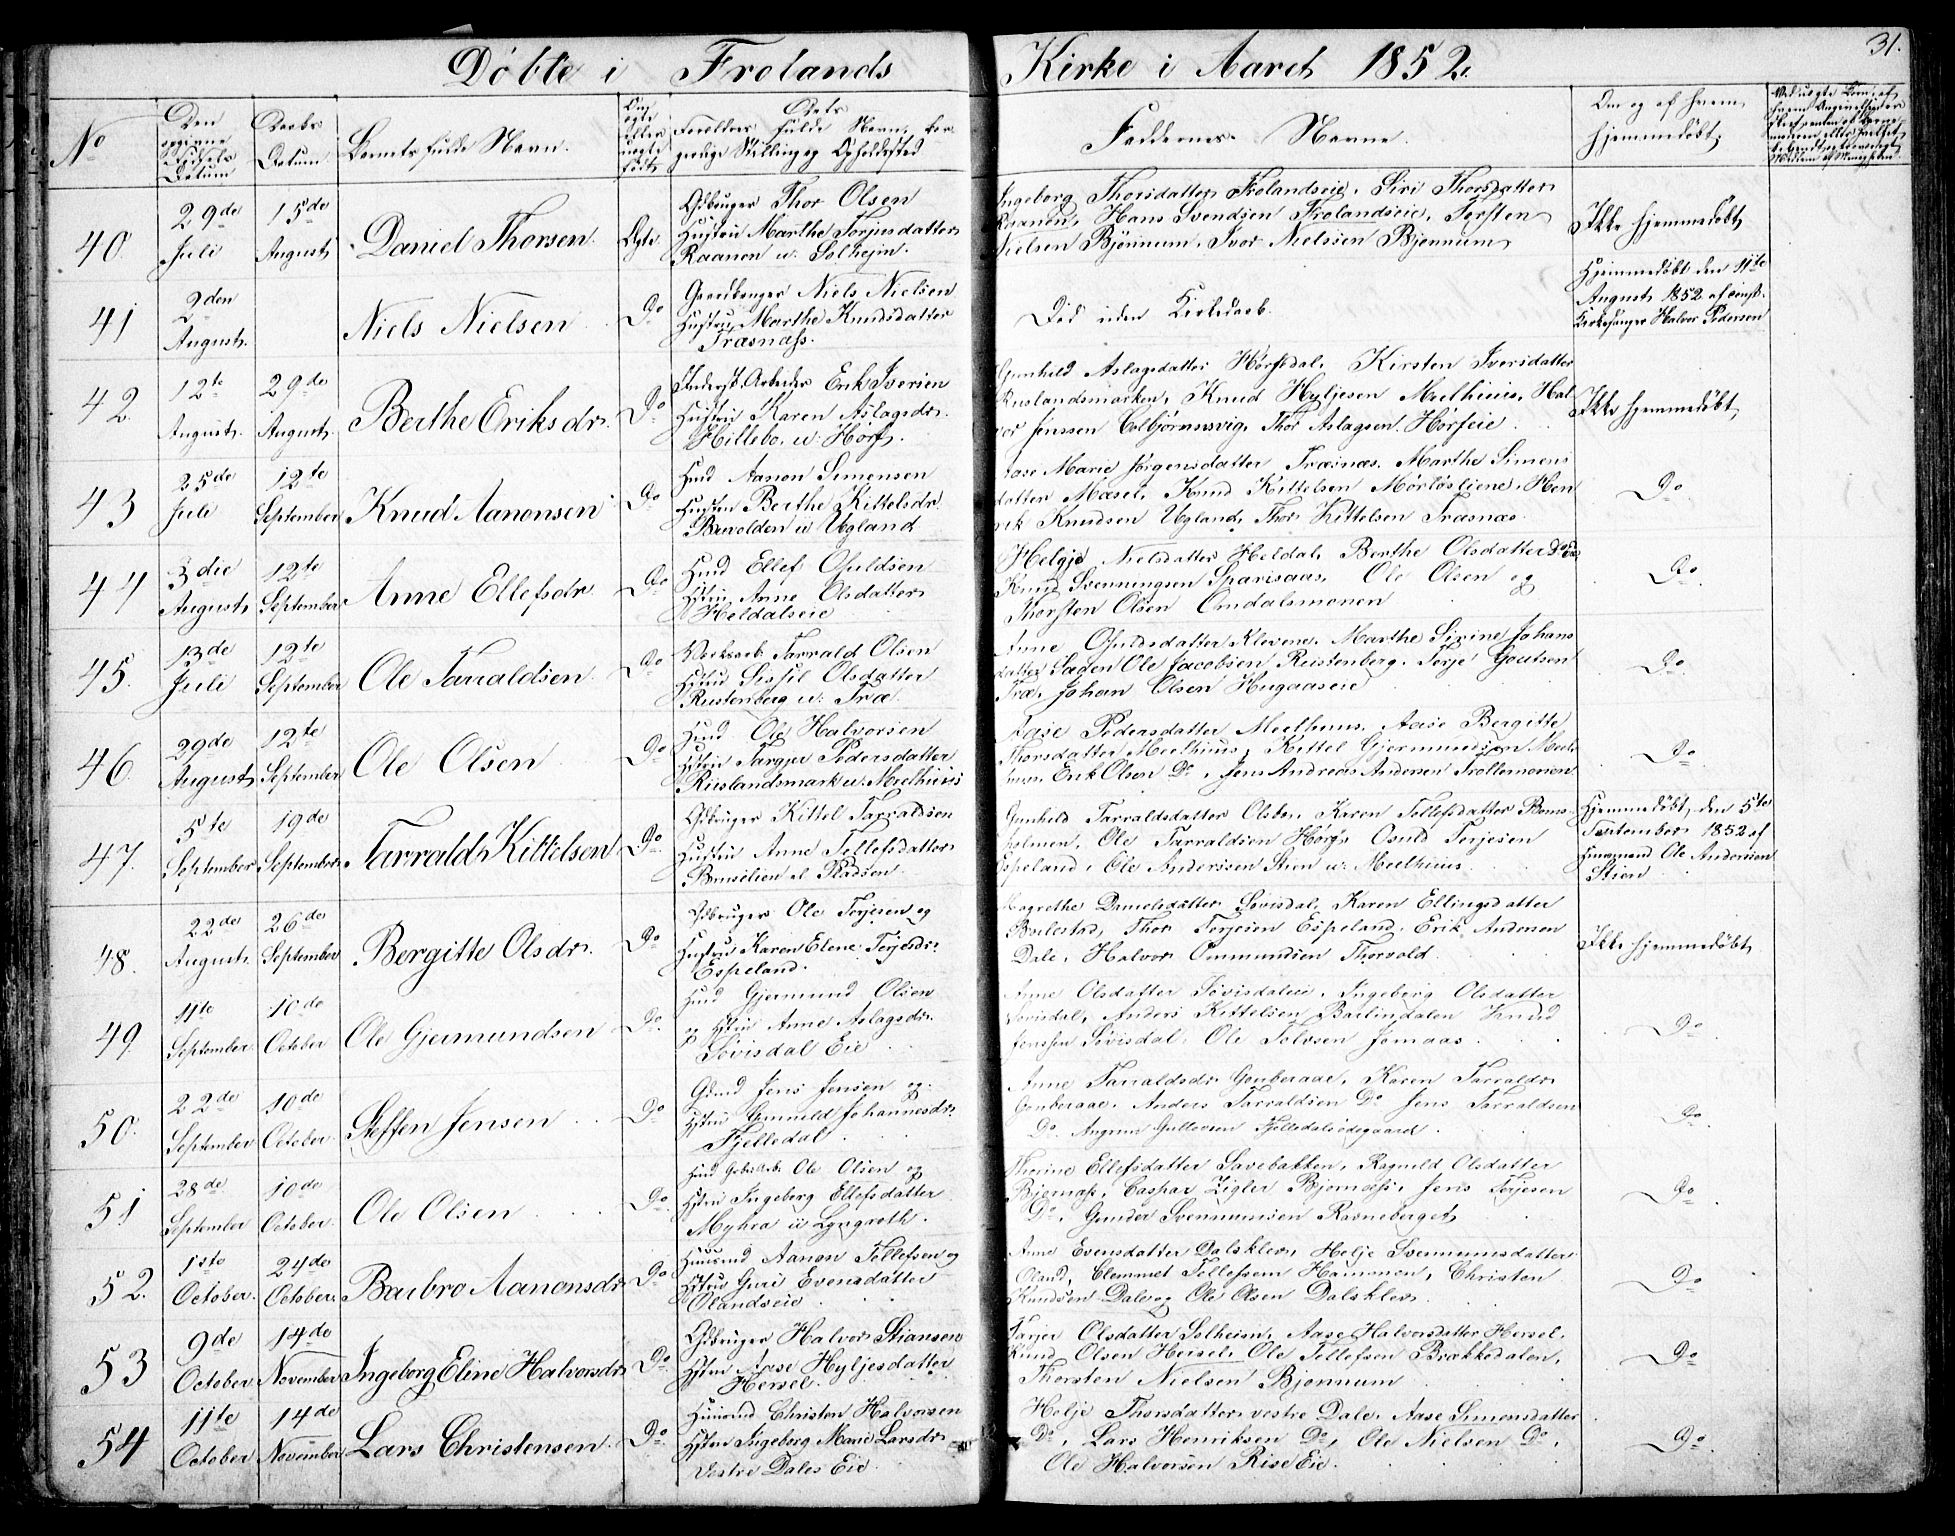 Døbte i Frolands Kirke i Aaret 1852.
31.
No
Den opgivne Fødsels Datum
Daabs Datum
Barnets fulde Navn.
Om ægte eller uægte født
Dets Forældres fulde Navn, borgerlige Stilling og Opholdssted
Faddernes Navne.
Om og af hvem hjemmedøbt
40.
29de Juli
15de August
Daniel Thorsen.
Ægte.
Gbruger Thor Olsen
Hustru Marthe Torjusdatter
Raanen u: Solheim.
Ingeborg Thorsdatter Frolandseie, Siri Thorsdatter
Raanen, Hans Svendsen Frolandseie, Torsten
Nielsen Bjönnum, Ivor Nielssen Bjönnum
Ikke hjemmedøbt
41
2den August.
Niels Nielsen
Do
Gaardbruger Niels Nielsen
Hustru Marthe Knudsdatter
Træsnæss.
Død uden Kirkedaab.
Hjemmedøbt den 11te
August 1852 af const.
Kirkesanger Halvor Pedersen
42.
12te August.
29de August.
Berthe Eriksdr.
Do
Arbeider Erik Iversen
Hustru Karen Aslagsdr.
Hillebo u: Hörf.
Gunhild Aslagsdatter Hörfsdal, Kirsten Iversdatter
Ruslandsmarken, Knud Hyljesen Mielhuus, Hal
vor Jenssen Colbjörnsvig, Thor Aslagsen Hörfeie.
Ikke hjemmedøbt
43
25de Juli
12te September
Knud Aanonsen
Do
Hmd Aanon Simonsen
Hustru Berthe Kittelsdr.
u Ugland
Aase Marie Jörgensdatter Træsnæs. Marthe Simons
datter Mæsel, Knud Kittelsen Mörlösliene, Hen
rik Knudsen Ugland, Thor Kittelsen Træsnæs.
Do
44
3die August
12te September
Anne Ellefsdr.
Do
Hmd Ellef Osuldsen
Hstru Anne Olsdatter
Heldalseie
Helgje Nielsdatter Heldal, Berthe Olsdatter Do Eie
Knud Svenningsen Sparsaas, Ole Olsen og
Thorsten Olsen Omdalsmonen
Do
45.
13de Juli
12te September
Ole Tarraldsen.
Do
Tarrald Olsen
Hstru Sissil Olsdatter
Rustenberg u: Træ.
Anne Osuldsdatter Klevene, Marthe Sirine Johans
datter Sagen Ole Jacobsen Reistenberg. Terje Goutsen
Træ, Johan Olsen Hugaaseie
Do
46.
29de August
12te September
Ole Olsen
Do
Hmd Ole Halvorsen
Hstru Targjer Pedersdatter
Ruslandsmark u. Mielhuus
Aase Pedersdatter Mielhuus. Aase Bergitte
Thorsdatter Mielhuus, Kittel Gjermundsen Miel
huus. Erik Olsen Do, Jens Andreas Andersen Trollemonen
Do
47.
5te September
19de September
Tarrald Kittelsen
Do
Gbruger Kittel Tarraldsen
Hustru Anne Tellefsdatter
Gunhild Tarraldsdatter Olsbo, Karen Tellefsdatter Bons
holmen, Ole Tarraldsen Hörfs Osuld Terjesen
Espeland, Ole Anderssen Stien u: Mielhuus.
Hjemmedøbt, den 5te
September 1852 af
Huusmand Ole Andersen
Stien
48.
22de August.
26de September
Bergitte Olsdr.
Do
Gbruger Ole Terjesen og
Hustru Karen Elene Terjesdr.
Espeland.
Magrethe Danielsdatter Sövisdal, Karen Ellingsdatter
Boilestad, Thor Terjesen Espeland, Erik Andersen
Dale, Halvor Ommundsen Thorvold.
Ikke hjemmedøbt
49.
11te September
10de October
Ole Gjermundsen
Do
Hmd Gjermund Olsen
og Hstru Anne Aslagsdr.
Sövisdal Eie
Anne Olsdatter Sövisdaleie, Ingeborg Olsdatter
Sövisdal, Anders Kittelsen Bailindalen Knud
Jenssen Sövisdal, Ole Tolvsen Jomaas.
Do
50.
22de September
10de October.
Steffen Jensen
Do
Gmd Jens Jensen og
Hstru Gunnild Johannesdr.
Fjelledal.
Anne Tarraldsdr. Gouberaae, Karen Tarraldsdr
Gouberaae. Anders Tarraldsen Do Jens Tarraldsen
Do. Angrim Gullovsen Fjelledalsödegaard.
Do
51
28de September
10de October.
Ole Olsen
Do
Hmd Ole Olsen og
Hstru Ingeborg Ellefsdatter
Myhra u Lyngroth.
Thorine Ellefsdatter Savebakken, Ragnild Olsdatter
Bjornæss, Caspar Zigler Bjornæss, Jens Terjesen
Do, Gunder Svennumsen Ravneberget
Do.
52.
1ste October.
24de October.
Barbro Aanonsdr
Do
Huusmd Aanon Tellefsen og
Hstru Guri Evensdatter
Olandseie
Anne Evensdatter Dalsklev, Helje Svennumsdatter
Oland, Clemmet Tellefssen Hammen, Christen
Knudsen Dale og Ole Olsen Dalsklev.
Do
53
9de October
14de November
Ingeborg Eline Halvorsdr
Do
Gbruger Halvor Stiansen
Hstru Aase Hyljesdatter
Hersel.
Tarjer Olsdatter Solheim, Aase Halvorsdatter Hersel,
Knud Olsen Hersel, Ole Tellefsen Brækkedalen,
Thorsten Nielsen Bjonnum
Do
54
11te October
14de November
Lars Christensen.
Do
Huusmd Christen Halvorsen
Hstru Ingeborg Marie Larsdr.
Vestre Dales Eie
Helje Thorsdatter vestre Dale, Aase Simonsdatter
Do, Lars Henriksen Do, Ole Nielsen Do,
Ole Halvorsen Rise Eie.
Do